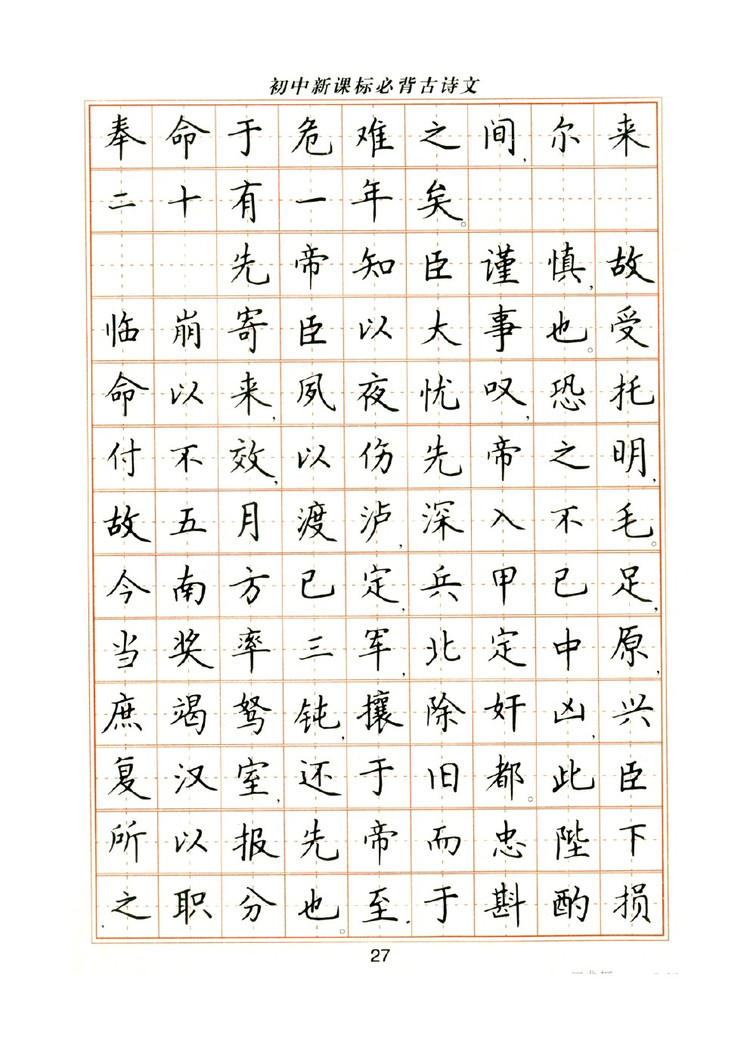 初中新课标必背古诗文
奉命于危难之间,尔来
二十有一年矣。
先帝知臣谨慎,故
临崩寄臣以大事也。受
命以来,夙夜忧叹,恐托
付不效,以伤先帝之明,
故五月渡泸,深入不毛。
今南方已定,兵甲已足,
当奖率三军,北定中原,
庶竭驽钝,攘除奸凶,兴
复汉室,还于旧都。此臣
所以报先帝而忠陛下
之职分也。至于斟酌损
27